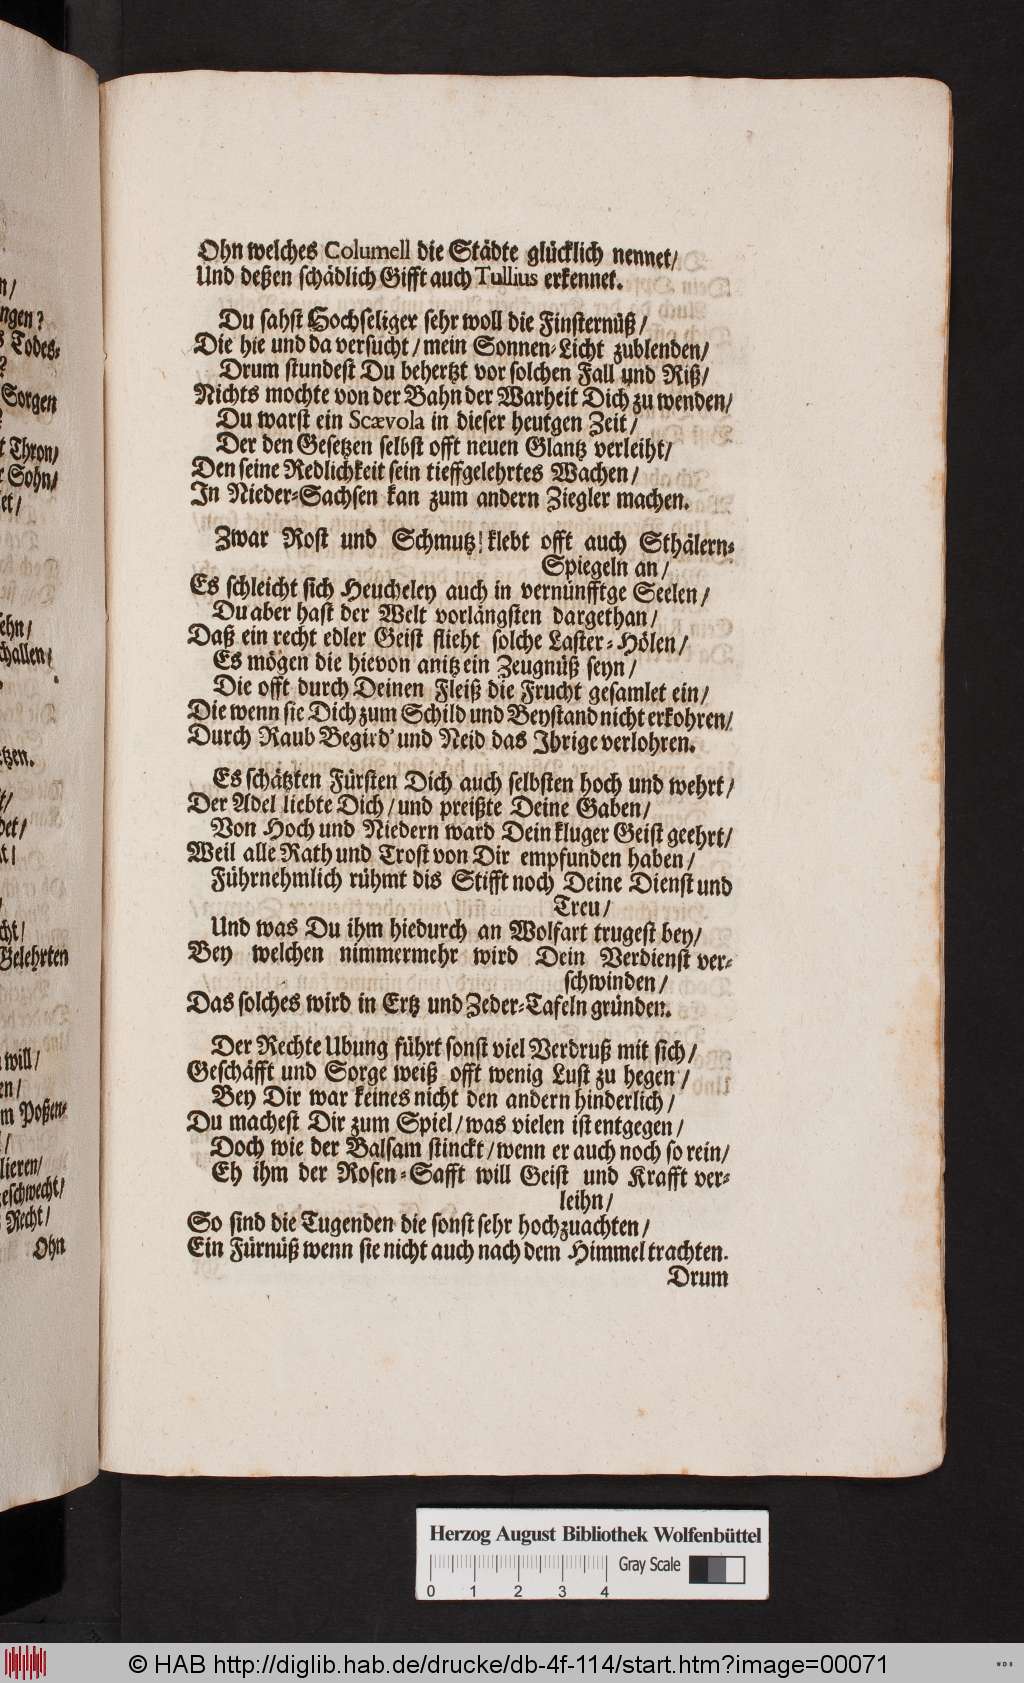 n/
ngen?
s Todes-
?
Sorgen
t Thron/
r Sohn/
et/
ehn/
challen/
etzen.
t/
det/
cht/
Gelehrten
will/
en/
m Poßen-
lieren/
geschwecht/
s Recht/
Ohn
Ohn welches Columell die Städte glücklich nennet/
Und deßen schädlich Gifft auch Tullius erkennet.
Du sahst Hochseliger sehr woll die Finsternüß/
Die hie und da versucht/ mein Sonnen-Licht zublenden/
Drum stundest Du behertzt vor solchen Fall und Riß/
Nichts mochte von der Bahn der Warheit Dich zu wenden/
Du warst ein Scævola in dieser heutgen Zeit/
Der den Gesetzen selbst offt neuen Glantz verleiht/
Den seine Redlichkeit sein tieffgelehrtes Wachen/
In Nieder-Sachsen kan zum andern Ziegler machen.
Zwar Rost und Schmutz! klebt offt auch Sthälern-
Spiegeln an/
Es schleicht sich Heucheley auch in vernünfftge Seelen/
Du aber hast der Welt vorlängsten dargethan/
Daß ein recht edler Geist flieht solche Laster-Hölen/
Es mögen die hievon anitz ein Zeugnüß seyn/
Die offt durch Deinen Fleiß die Frucht gesamlet ein/
Die wenn sie Dich zum Schild und Beystand nicht erkohren/
Durch Raub Begird' und Neid das Ihrige verlohren.
Es schätzten Fürsten Dich auch selbsten hoch und wehrt/
Der Adel liebte Dich/ und preißte Deine Gaben/
Von Hoch und Niedern ward Dein kluger Geist geehrt/
Weil alle Rath und Trost von Dir empfunden haben/
Führnehmlich rühmt dis Stifft noch Deine Dienst und
Treu/
Und was Du ihm hiedurch an Wolfart trugest bey/
Bey welchen nimmermehr wird Dein Verdienst ver-
schwinden/
Das solches wird in Ertz und Zeder-Tafeln gründen.
Der Rechte Ubung führt sonst viel Verdruß mit sich/
Geschäfft und Sorge weiß offt wenig Lust zu hegen/
Bey Dir war keines nicht den andern hinderlich/
Du machest Dir zum Spiel/ was vielen ist entgegen/
Doch wie der Balsam stinckt/ wenn er auch noch so rein/
Eh ihm der Rosen-Safft will Geist und Krafft ver-
leihn/
So sind die Tugenden die sonst sehr hochzuachten/
Ein Fürnüß wenn sie nicht auch nach dem Himmel trachten.
Drum
Herzog August Bibliothek Wolfenbüttel
Gray Scale
0 1 2 3 4
© HAB http://diglib.hab.de/drucke/db-4f-114/start.htm?image=00071